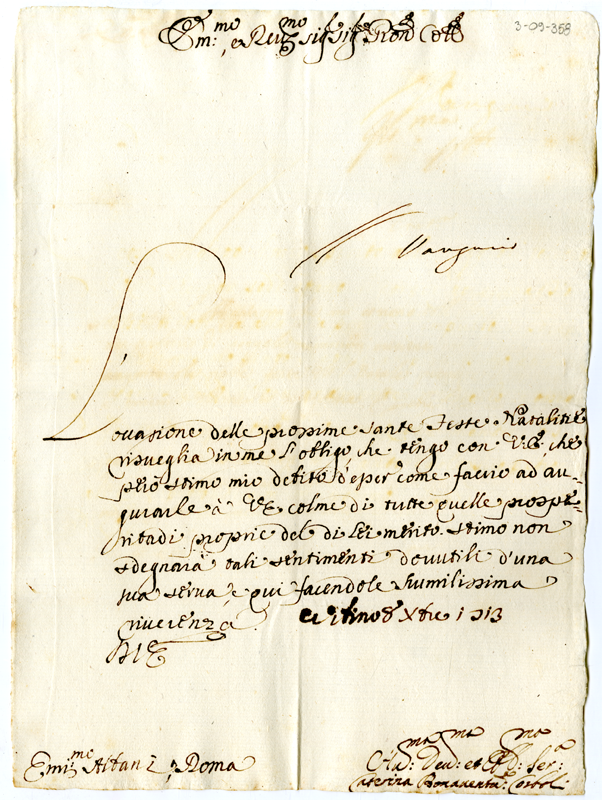 3-09-358
Em:mo e Reu:mo Sig:r Sig:r Pron Col:mo
L'ovasione delle prossime Sante Feste Natalitie
risveglia in me l'obligo che tengo con V:E: che
perciò stimo mio debito d'eper come faccio ad au-
gurarle à VE colme di tutte quelle prospe-
rità di proprie del di Lei merito. stimo non
sdegnarà tali sentimenti dovutili d'una
sua serva e qui facendole humilissima
riverenza
8 Xbre 1713
Emi:mo Albani ; Roma
Deu: et Ser:
Caterina Bonaventa: